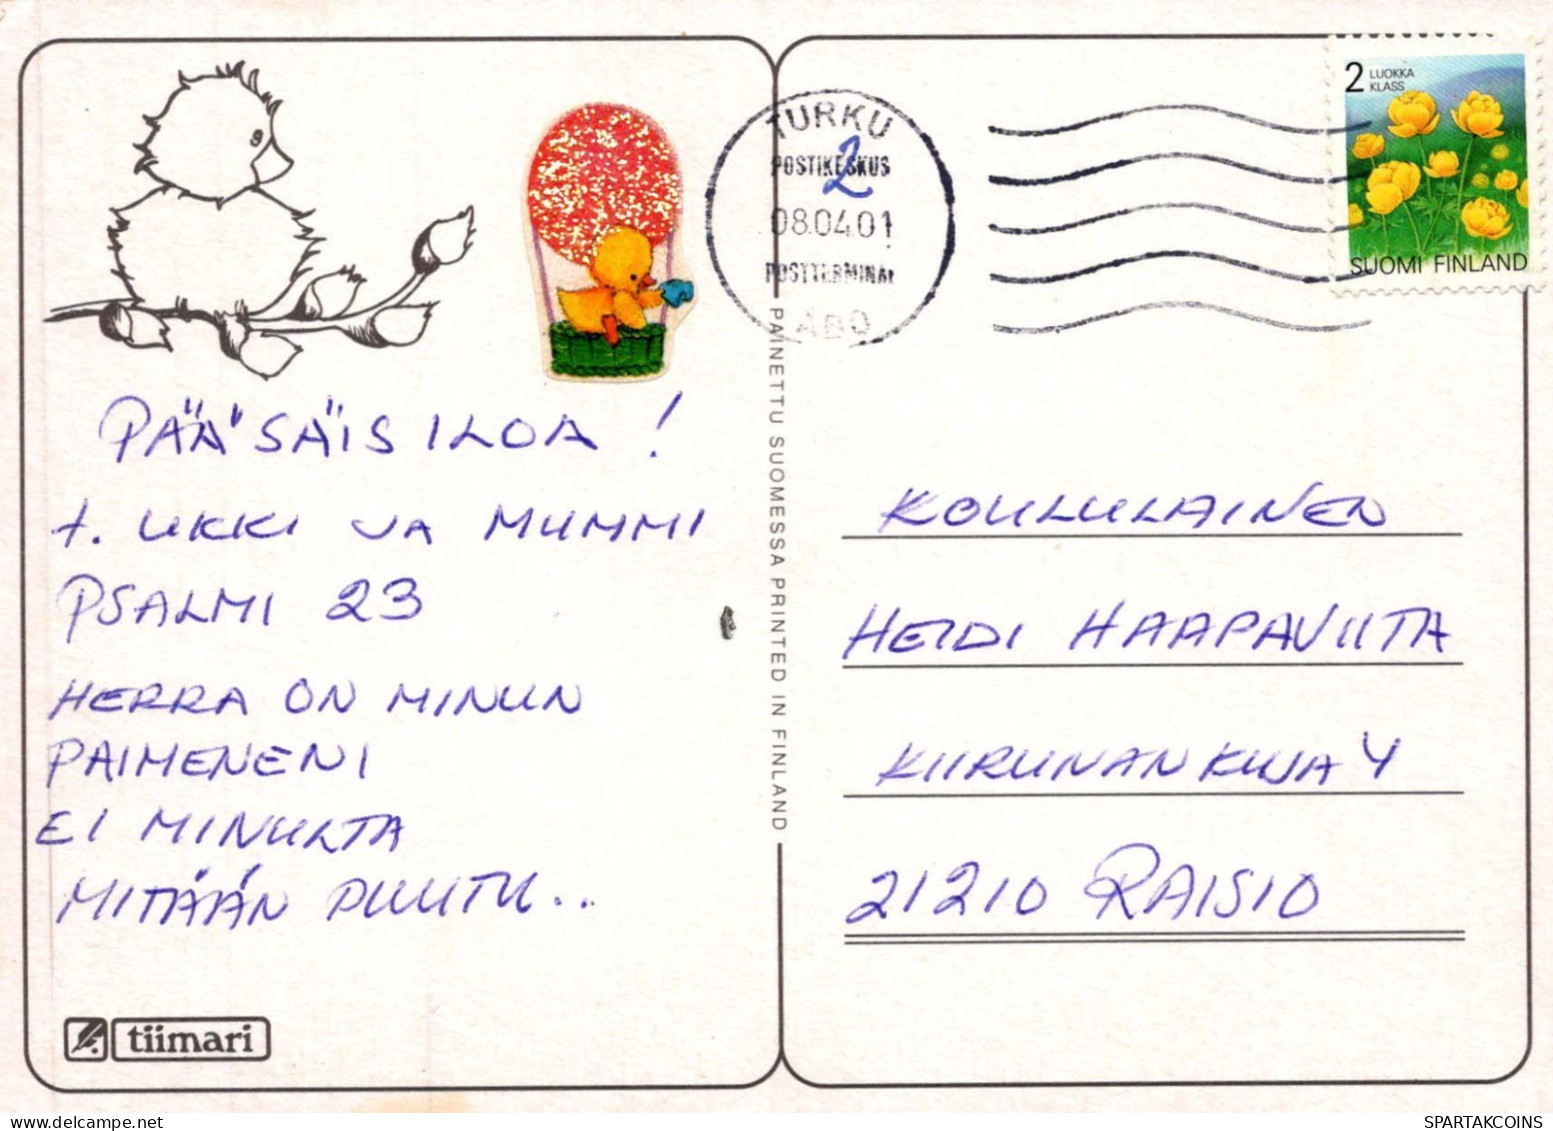 PÄÄSÄIS ILOA !
T. UKKI JA MUMMI
PSALMI 23
HERRA ON MINUN
PAIMENENI
EI MINULTA
MITÄÄN PUUTU...
tiimari
PAINETTU SUOMESSA PRINTED IN FINLAND
TURKU
POSTIKESKUS
2
08.04.01
POSTTERMINAL
ÅBO
2 LUOKKA
KLASS
SUOMI FINLAND
KOULULAINEN
HEIDI HAAPAVIITA
KIIRUNANKUJA 4
21210 RAISIO
SPARTAKCOINS